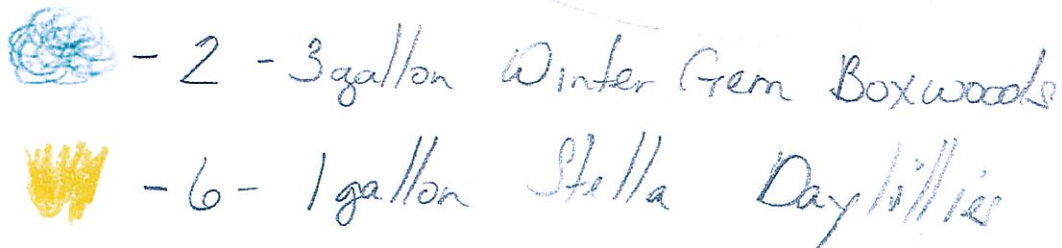 - 2 - 3 gallon Winter Gem Boxwoods
- 6 - 1 gallon Stella Daylillies